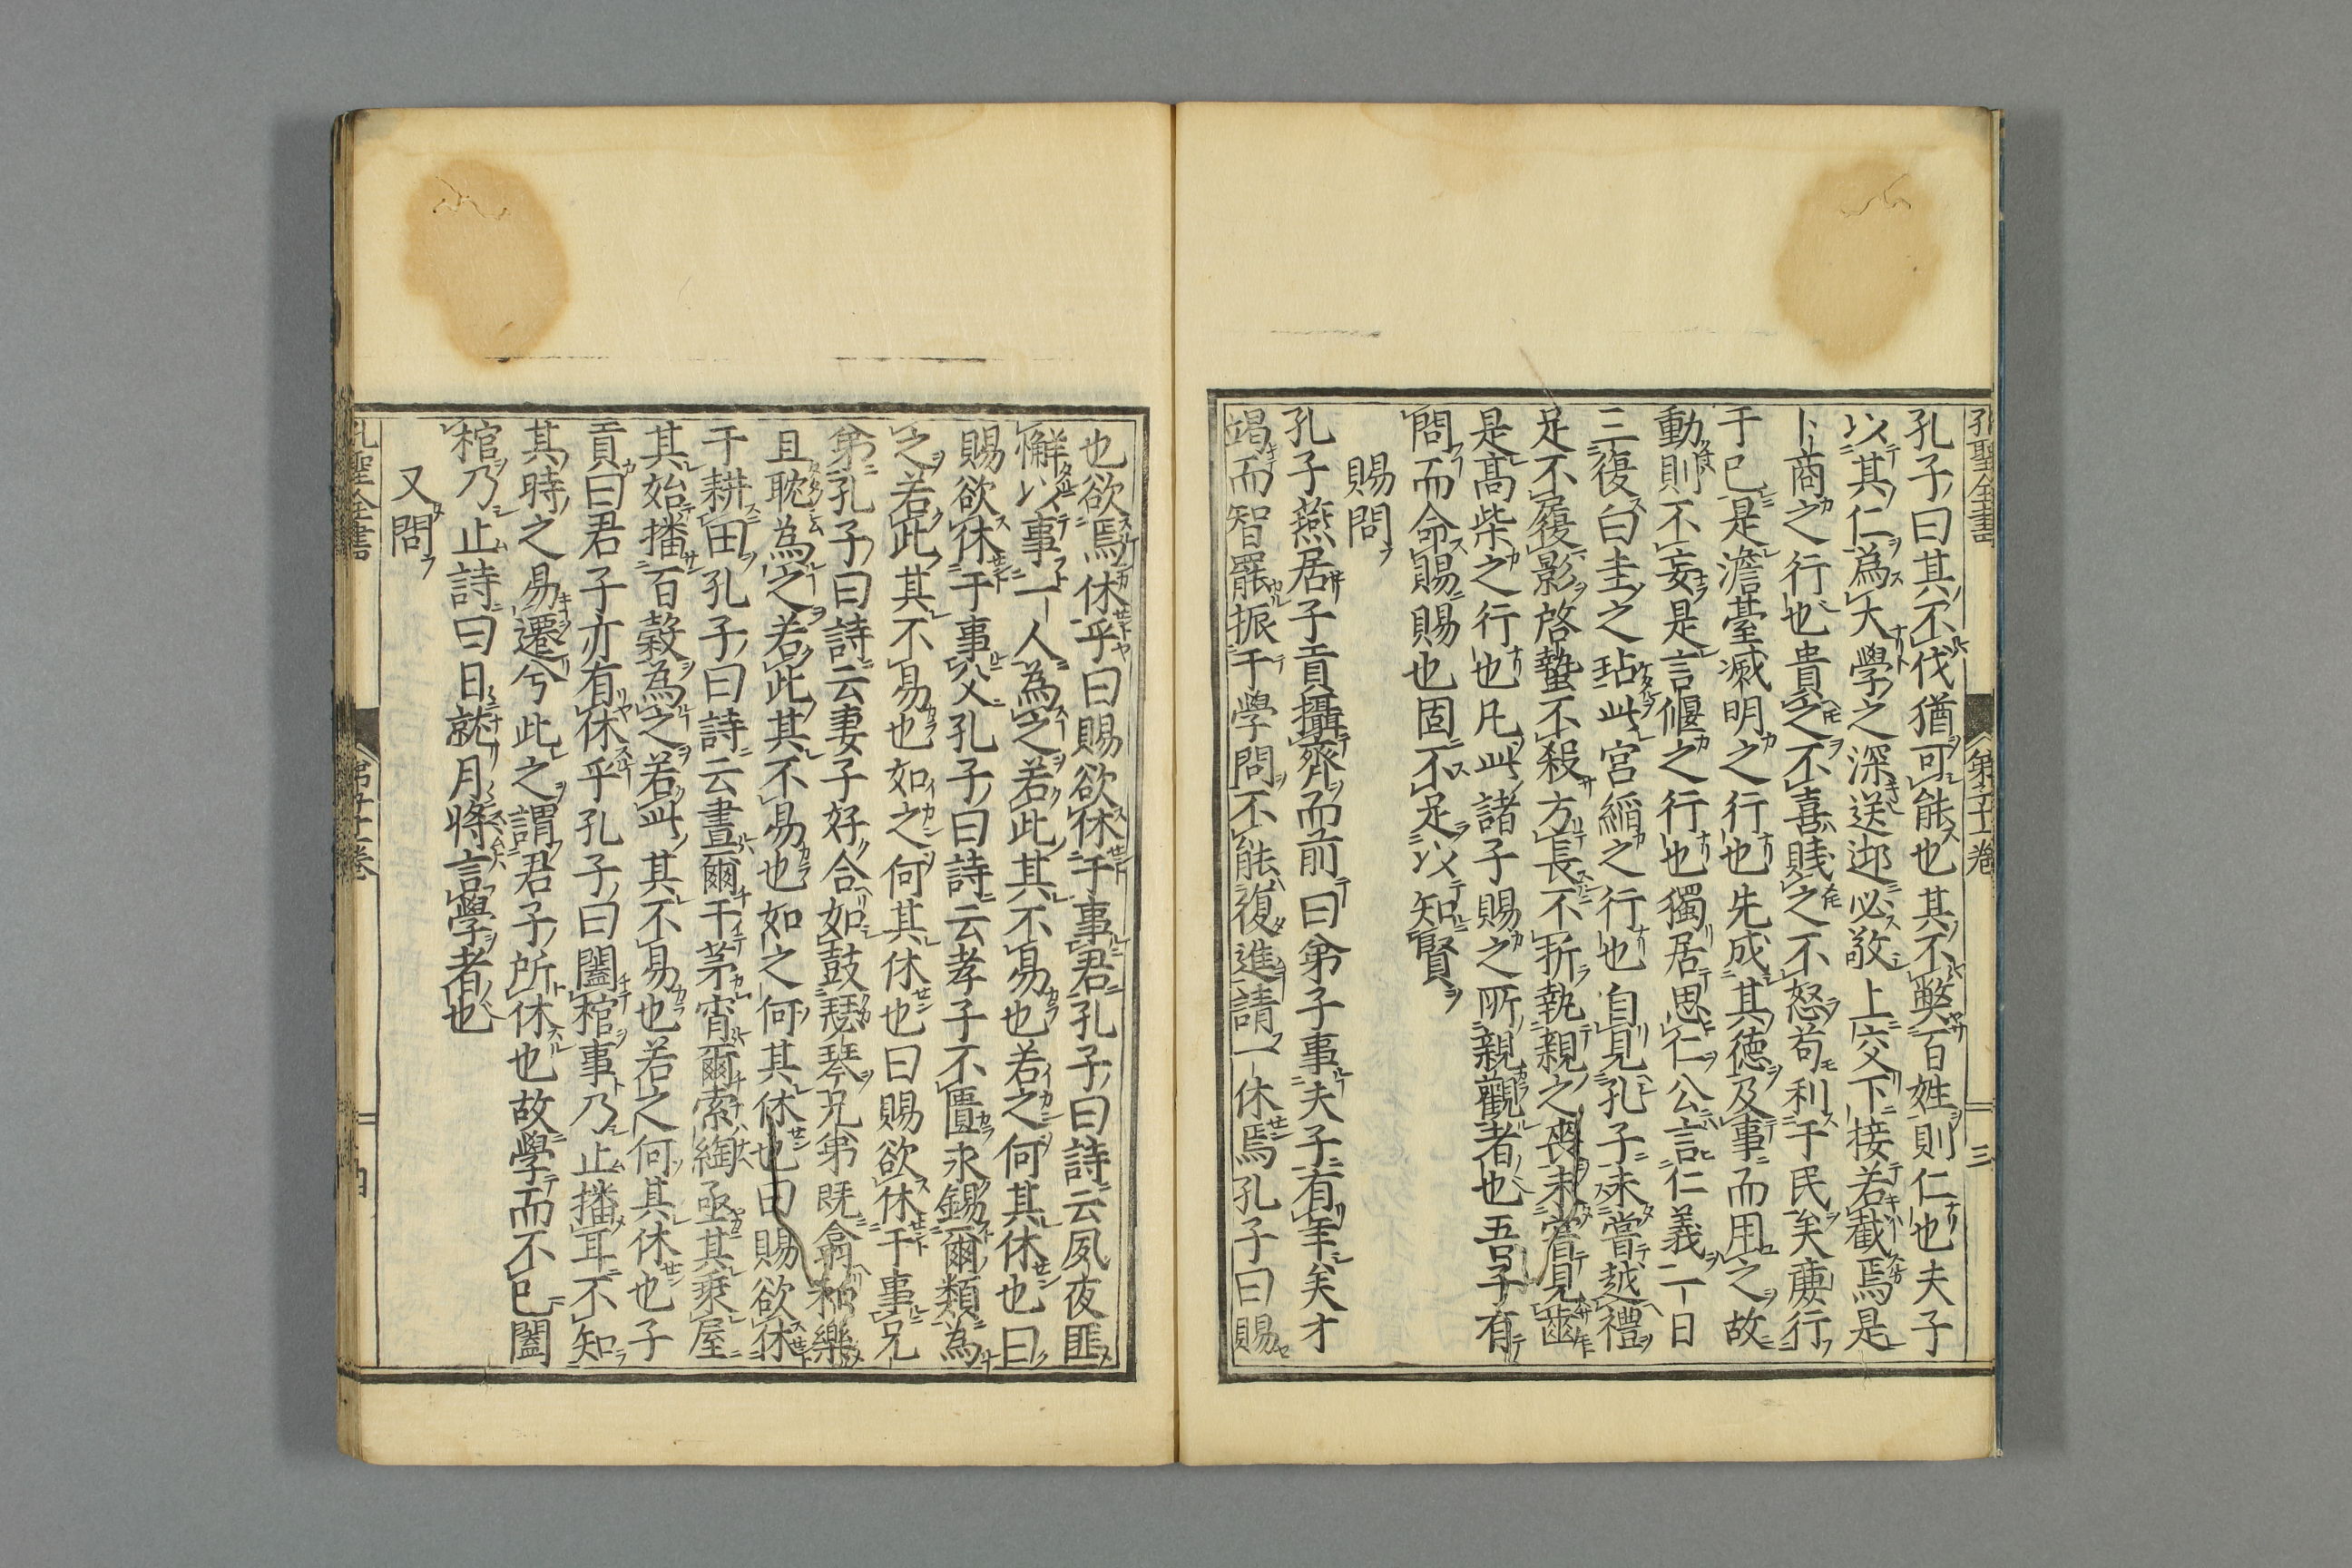 孔聖全書
第子卷
三
孔子曰其不伐猶可能也其不弊百姓則仁也夫子
以其仁為大學之深送迎必敬上交下接若截焉是
卜商之行也貴之不喜賤之不怒苟利于民矣廉行
于已是澹臺滅明之行也先成其德及事而用之故
動則不妄是言偃之行也獨居思仁公言仁義一日
三復白圭之玷此宮縚之行也自見孔子未嘗越禮
足不履影啓蟄不殺方長不折執親之喪未嘗見齒
是高柴之行也凡此諸子賜之所親觀者也吾子有
問而命賜賜也固不足以知賢
賜問
孔子燕居子貢攝齊而前曰弟子事夫子有年矣才
竭而智罷振于學問不能復進請一休焉孔子曰賜
也欲焉休乎曰賜欲休于事君孔子曰詩云夙夜匪
懈以事一人為之若此其不易也若之何其休也曰
賜欲休于事父孔子曰詩云孝子不匱永錫爾類為
之若此其不易也如之何其休也曰賜欲休于事兄
弟孔子曰詩云妻子好合如鼓瑟琴兄弟既翕和樂
且耽為之若此其不易也如之何其休也曰賜欲休
于耕田孔子曰詩云晝爾于茅宵爾索綯亟其乘屋
其始播百穀為之若此其不易也若之何其休也子
貢曰君子亦有休乎孔子曰闔棺事乃止播耳不知
其時之易遷兮此之謂君子所休也故學而不已闔
棺乃止詩曰日就月將言學者也
又問
孔聖全書
第子卷
四